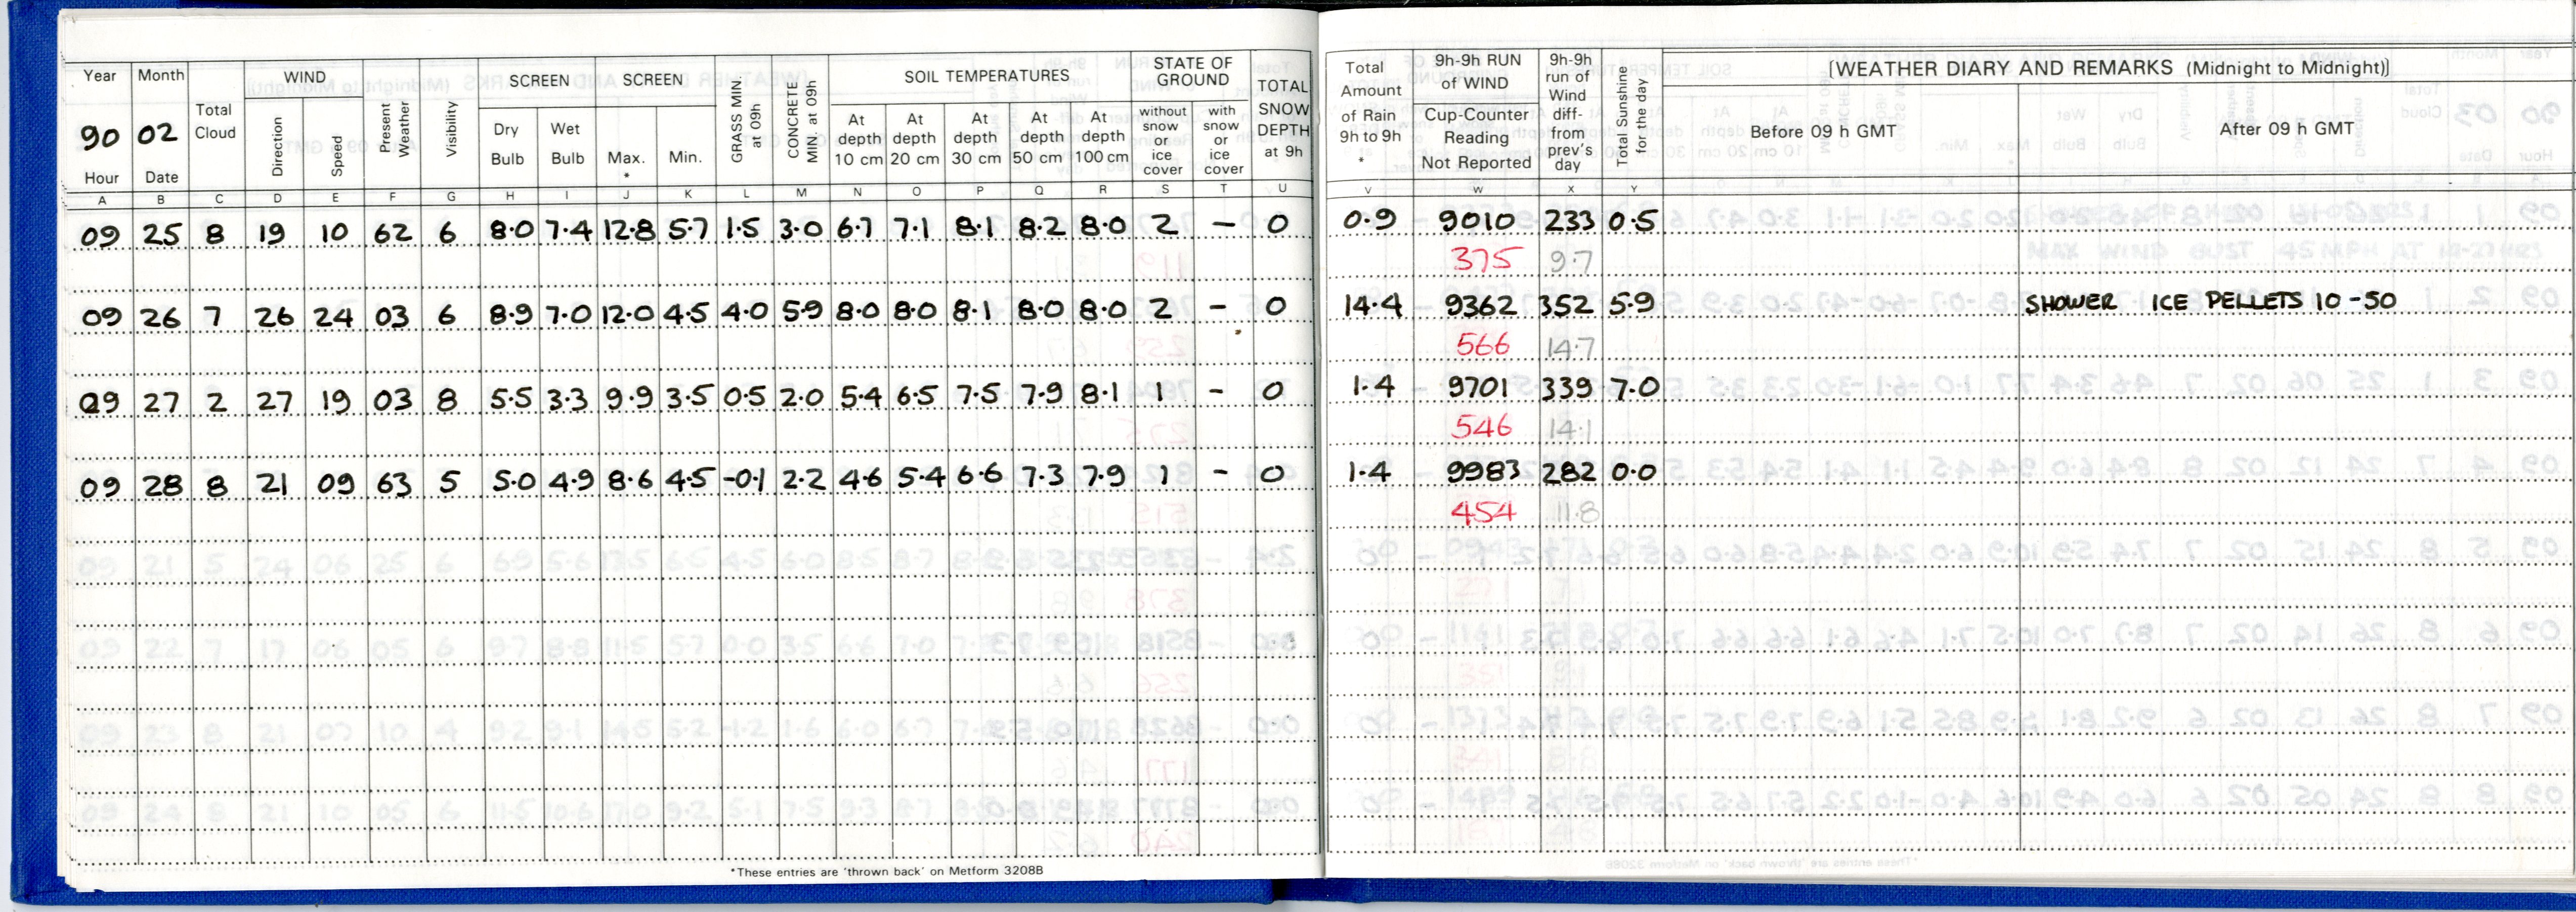 Year Month Total Cloud WIND Present Weather Visibility SCREEN SCREEN GRASS MIN. at 09h CONCRETE MIN. at 09h SOIL TEMPERATURES STATE OF GROUND TOTAL SNOW DEPTH at 9h
90 02 Direction Speed Dry Bulb Wet Bulb Max. * Min. At depth 10 cm At depth 20 cm At depth 30 cm At depth 50 cm At depth 100 cm without snow or ice cover with snow or ice cover
Hour Date
A B C D E F G H I J K L M N O P Q R S T U
09 25 8 19 10 62 6 8.0 7.4 12.8 5.7 1.5 3.0 6.7 7.1 8.1 8.2 8.0 2 – 0
09 26 7 26 24 03 6 8.9 7.0 12.0 4.5 4.0 5.9 8.0 8.0 8.1 8.0 8.0 2 – 0
09 27 2 27 19 03 8 5.5 3.3 9.9 3.5 0.5 2.0 5.4 6.5 7.5 7.9 8.1 1 – 0
09 28 8 21 09 63 5 5.0 4.9 8.6 4.5 -0.1 2.2 4.6 5.4 6.6 7.3 7.9 1 – 0
*These entries are 'thrown back' on Metform 3208B
Total Amount of Rain 9h to 9h * 9h-9h RUN of WIND Cup-Counter Reading Not Reported 9h-9h run of Wind diff- from prev's day Total Sunshine for the day [WEATHER DIARY AND REMARKS (Midnight to Midnight)]
Before 09 h GMT After 09 h GMT
V W X Y
0.9 9010 233 0.5
375 9.7
14.4 9362 352 5.9 SHOWER ICE PELLETS 10-50
566 14.7
1.4 9701 339 7.0
546 14.1
1.4 9983 282 0.0
454 11.8